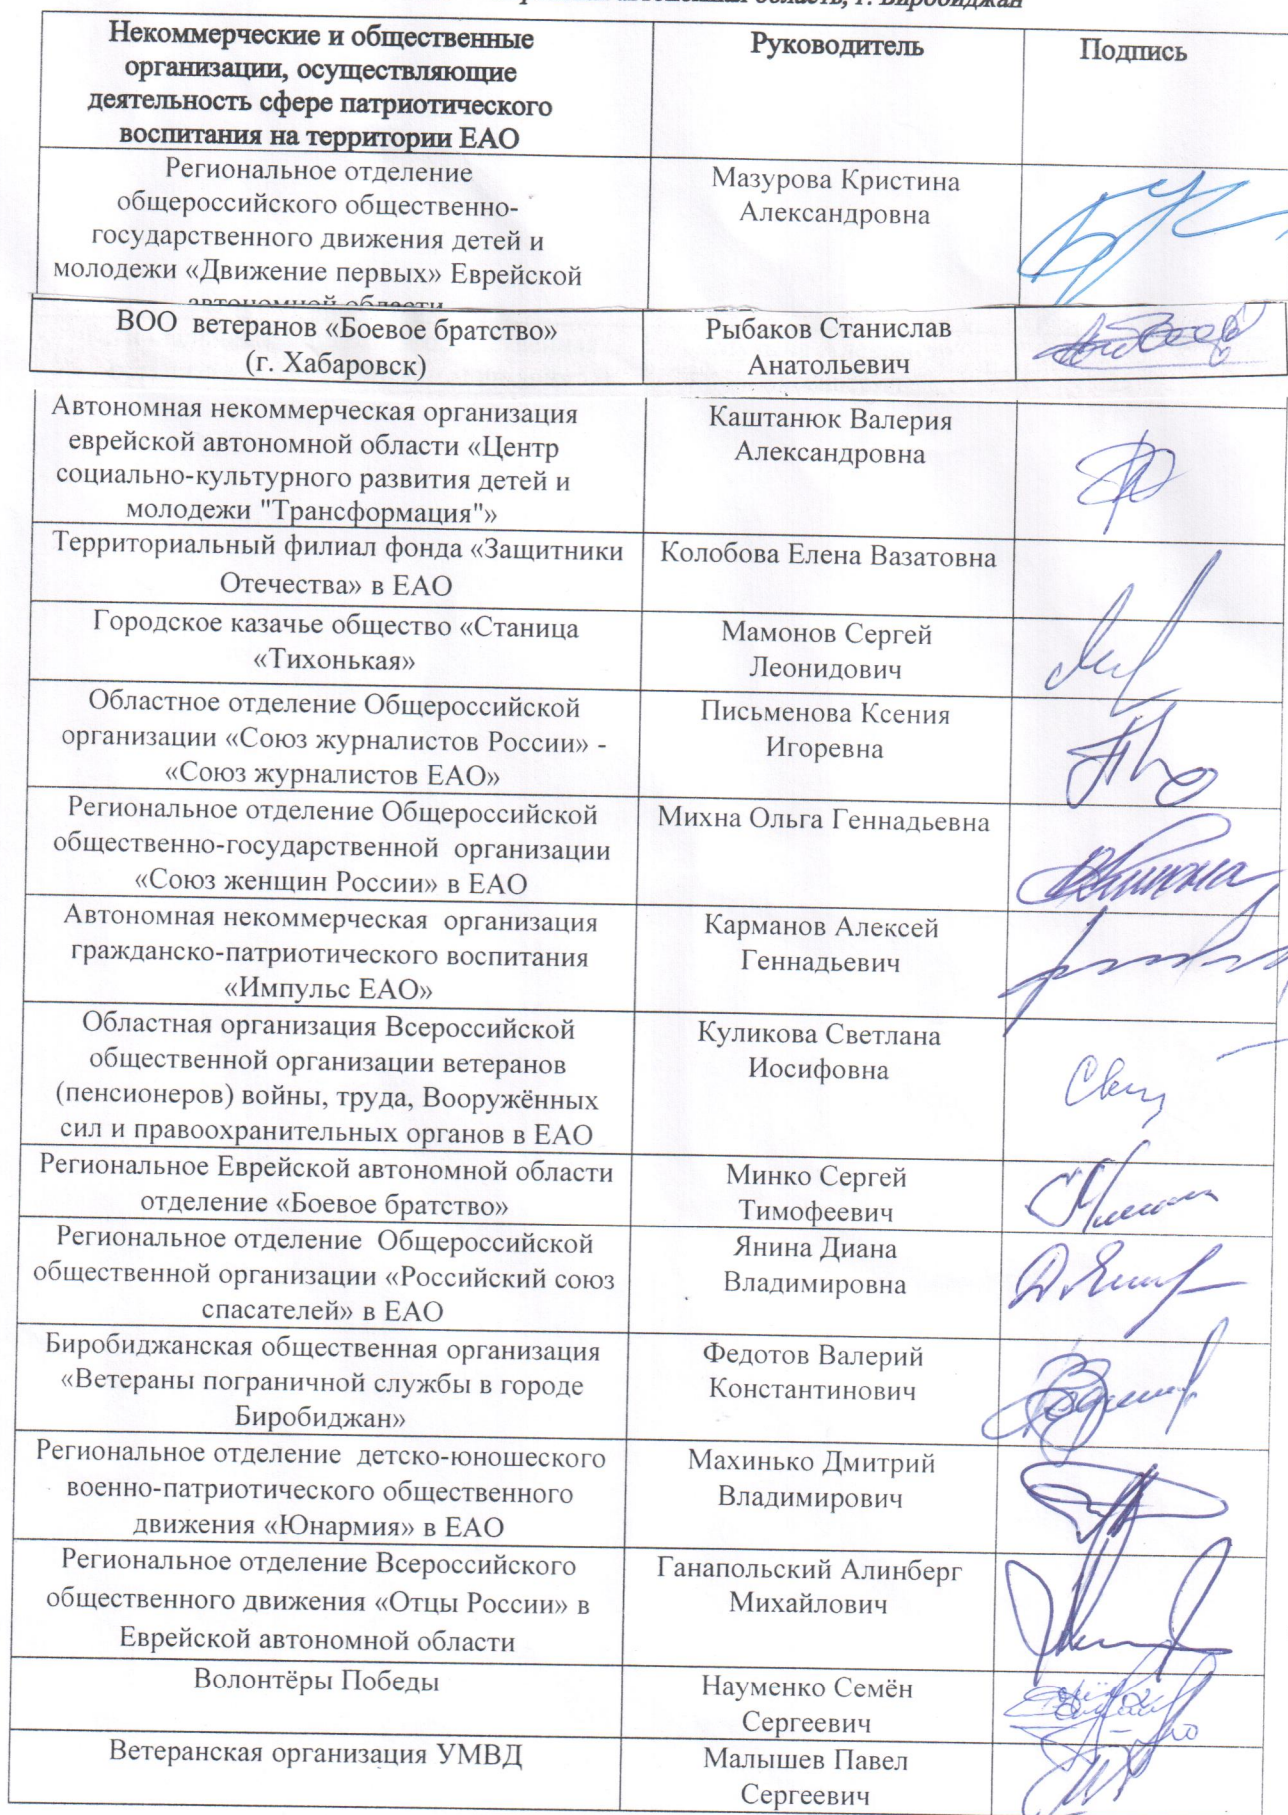 область, г. Биробиджан
Некоммерческие и общественные
организации, осуществляющие
деятельность сфере патриотического
воспитания на территории ЕАО
Руководитель
Подпись
Региональное отделение
общероссийского общественно-
государственного движения детей и
молодежи «Движение первых» Еврейской
автономной области
Мазурова Кристина
Александровна
ВОО ветеранов «Боевое братство»
(г. Хабаровск)
Рыбаков Станислав
Анатольевич
Автономная некоммерческая организация
еврейской автономной области «Центр
социально-культурного развития детей и
молодежи "Трансформация"»
Каштанюк Валерия
Александровна
Территориальный филиал фонда «Защитники
Отечества» в ЕАО
Колобова Елена Вазатовна
Городское казачье общество «Станица
«Тихонькая»
Мамонов Сергей
Леонидович
Областное отделение Общероссийской
организации «Союз журналистов России» -
«Союз журналистов ЕАО»
Письменова Ксения
Игоревна
Региональное отделение Общероссийской
общественно-государственной организации
«Союз женщин России» в ЕАО
Михна Ольга Геннадьевна
Автономная некоммерческая организация
гражданско-патриотического воспитания
«Импульс ЕАО»
Карманов Алексей
Геннадьевич
Областная организация Всероссийской
общественной организации ветеранов
(пенсионеров) войны, труда, Вооружённых
сил и правоохранительных органов в ЕАО
Куликова Светлана
Иосифовна
Региональное Еврейской автономной области
отделение «Боевое братство»
Минко Сергей
Тимофеевич
Региональное отделение Общероссийской
общественной организации «Российский союз
спасателей» в ЕАО
Янина Диана
Владимировна
Биробиджанская общественная организация
«Ветераны пограничной службы в городе
Биробиджан»
Федотов Валерий
Константинович
Региональное отделение детско-юношеского
военно-патриотического общественного
движения «Юнармия» в ЕАО
Махинько Дмитрий
Владимирович
Региональное отделение Всероссийского
общественного движения «Отцы России» в
Еврейской автономной области
Ганапольский Алинберг
Михайлович
Волонтёры Победы
Науменко Семён
Сергеевич
Ветеранская организация УМВД
Малышев Павел
Сергеевич